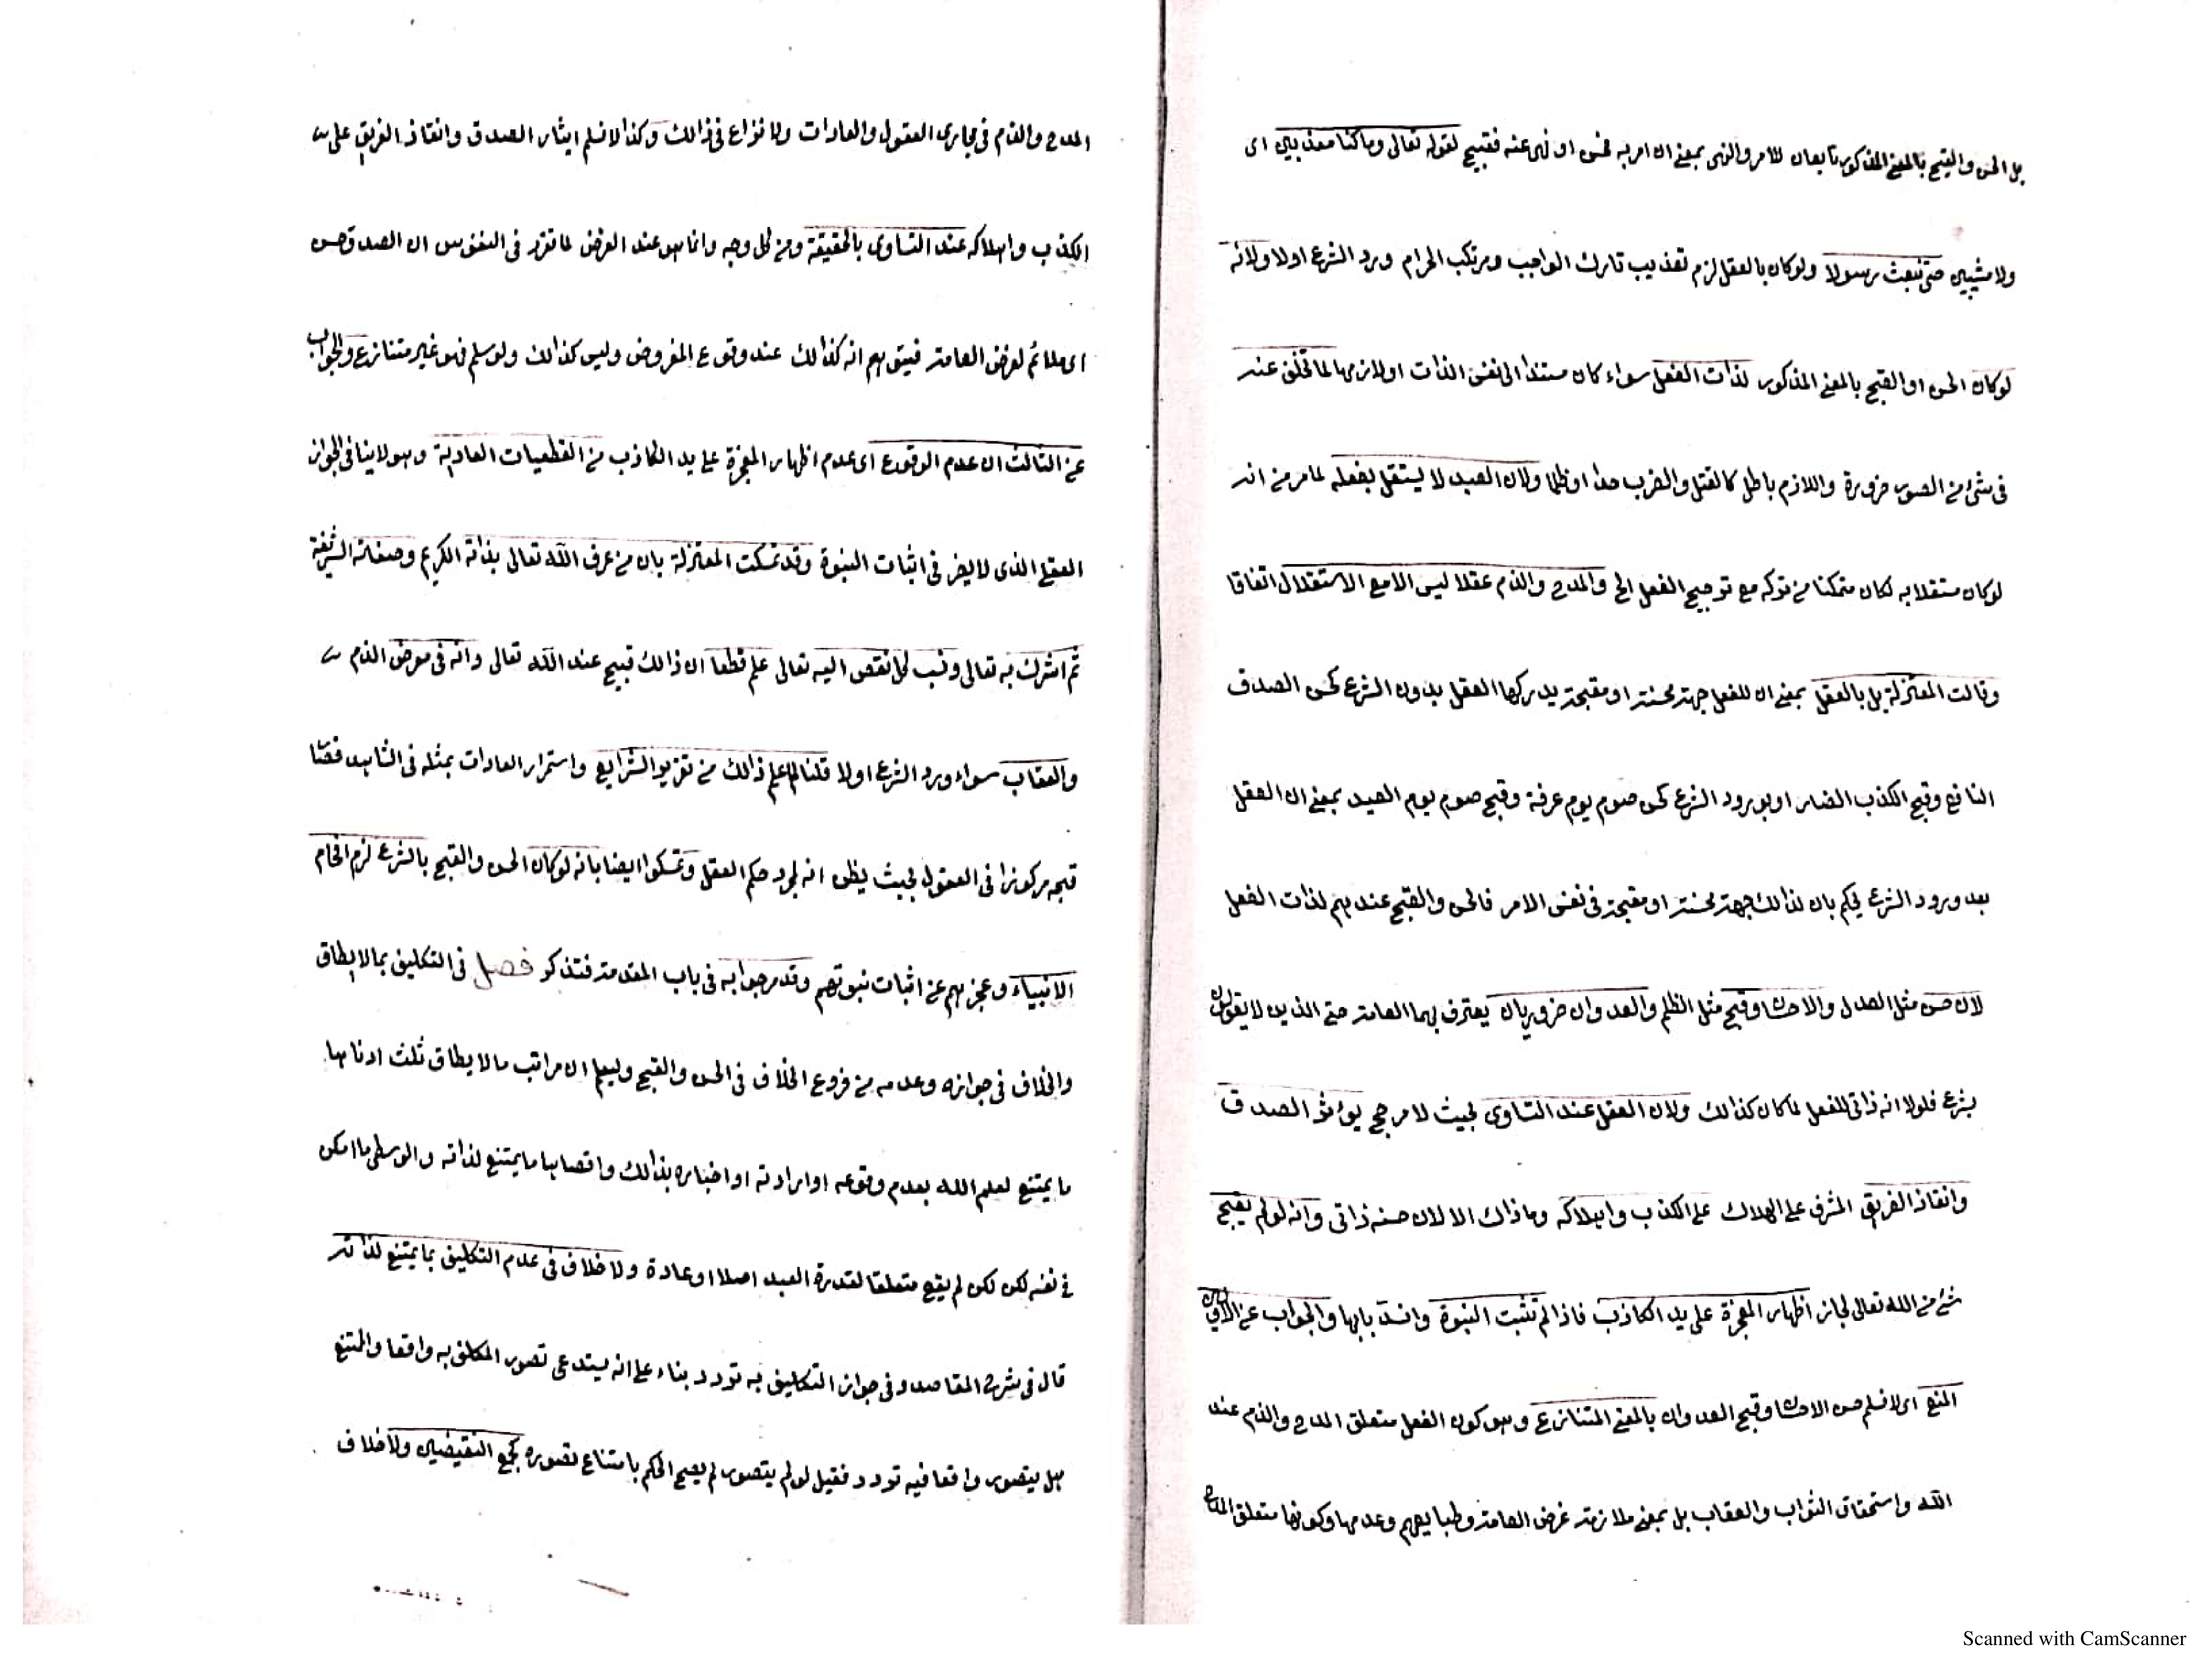 بل الحسن والقبح بالمعنى المذكور تابعان للامر والنهى بمعنى ان امر به فحسن او نهى عنه فقبيح لقوله تعالى وما كنا معذبين اى
ولا مثيبين حتى نبعث رسولا ولو كان بالعقل لزم تعذيب تارك الواجب ومرتكب الحرام ورد الشرع اولا ولانه
لو كان الحسن او القبح بالمعنى المذكور لذات الفعل سواء كان مستندا الى نفس الذات او لازمها لما تخلف عنه
فى شئ من الصور ضرورة واللازم باطل كالقتل والضرب حدا او ظلما ولان العبد لا يستقل بفعله لما مر من انه
لو كان مستقلا به لكان متمكنا من تركه مع ترجيح الفعل الخ والمدح والذم عقلا ليس الا مع الاستقلال اتفاقا
وقالت المعتزلة بل بالعقل بمعنى ان للفعل جهة محسنة او مقبحة يدركها العقل بدون الشرع كحسن الصدق
النافع وقبح الكذب الضار او بورود الشرع كحسن صوم يوم عرفة وقبح صوم يوم العيد بمعنى ان العقل
بعد ورود الشرع يحكم بان لذالك جهة محسنة او مقبحة فى نفس الامر فالحسن والقبح عندهم لذات الفعل
لان حسن مثل العدل والاحسان وقبح مثل الظلم والعدوان ضروريان يعترف بهما العامة حتى الذين لا يقولون
بشرع فلولا انه ذاتى للفعل لما كان كذالك ولان العقل عند التساوى بحيث لا مرجح يؤثر الصدق
وانقاذ الغريق المشرف على الهلاك على الكذب واهلاكه وما ذاك الا لان حسنه ذاتى وانه لو لم يقبح
شئ من الله تعالى لجاز اظهار المعجزة على يد الكاذب فاذا لم تثبت النبوة وانسد بابها والجواب عن الاولين
المنع اى لا نسلم حسن الاحسان وقبح العدوان بالمعنى المتنازع وهو كون الفعل متعلق المدح والذم عند
الله واستحقاق الثواب والعقاب بل بمعنى ملازمة غرض العامة وطبايعهم وعدمها وكونها متعلق المدح
المدح والذم فى مجارى العقول والعادات ولا نزاع فى ذالك وكذا لا نسلم ايثار الصدق وانقاذ الغريق على
الكذب واهلاكه عند التساوى بالحقيقة ومن كل وجه وانما هو عند الفرض لما تقرر فى النفوس ان الصدق حسن
اى ملائم لغرض العامة فيتوهم انه كذالك عند وقوع المفروض وليس كذالك ولو سلم فهو غير متنازع والجواب
عن الثالث ان عدم الوقوع اى عدم اظهار المعجزة على يد الكاذب من القطعيات العادية وهو لا ينافى الجواز
العقلى الذى لا يضر فى اثبات النبوة وقد تمسكت المعتزلة بان من عرف الله تعالى بذاته الكريم وصفاته الشريفة
ثم اشرك به تعالى ونسب كل نقص اليه تعالى علم قطعا ان ذالك قبيح عند الله تعالى وانه فى معرض الذم
والعقاب سواء ورد الشرع اولا قلنا لما علم ذالك من تقرير الشرايع واستمرار العادات بمثله فى الشاهد فصار
قبحه مركوزا فى العقول بحيث يظن انه لمجرد حكم العقل وتمسكوا ايضا بانه لو كان الحسن والقبح بالشرع لزم افحام
الانبياء وعجزهم عن اثبات نبوتهم وقد مر جوابه فى باب المقدمة فتذكر فصل فى التكليف بما لا يطاق
والخلاف فى جوازه وعدمه من فروع الخلاف فى الحسن والقبح وليعلم ان مراتب ما لا يطاق ثلث ادناها
ما يمتنع لعلم الله بعدم وقوعه او ارادته او اخباره بذالك واقصاها ما يمتنع لذاته والوسطى ما امكن
فى نفسه لكن لكن لم يقع متعلقا لقدرة العبد اصلا او عادة ولا خلاف فى عدم التكليف بما يمتنع لذاته
قال فى شرح المقاصد وفى جواز التكليف به تردد بناء على انه يستدعى تصور المكلف به واقعا والممتنع
هل يتصور واقعا فيه تردد فقيل لو لم يتصور لم يصح الحكم بامتناع تصوره كجمع النقيضين ولا خلاف
Scanned with CamScanner